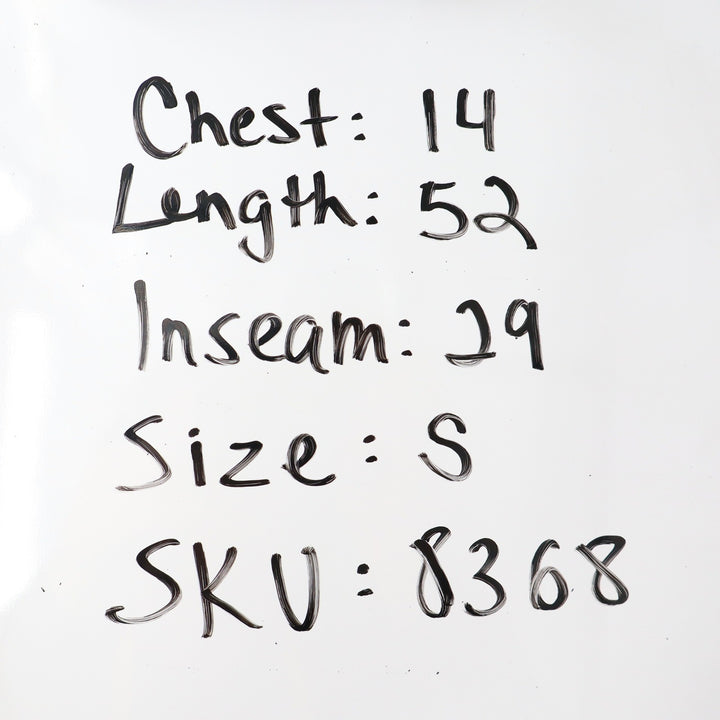 Chest: 14
Length: 52
Inseam: 29
Size: S
SKU: 8368